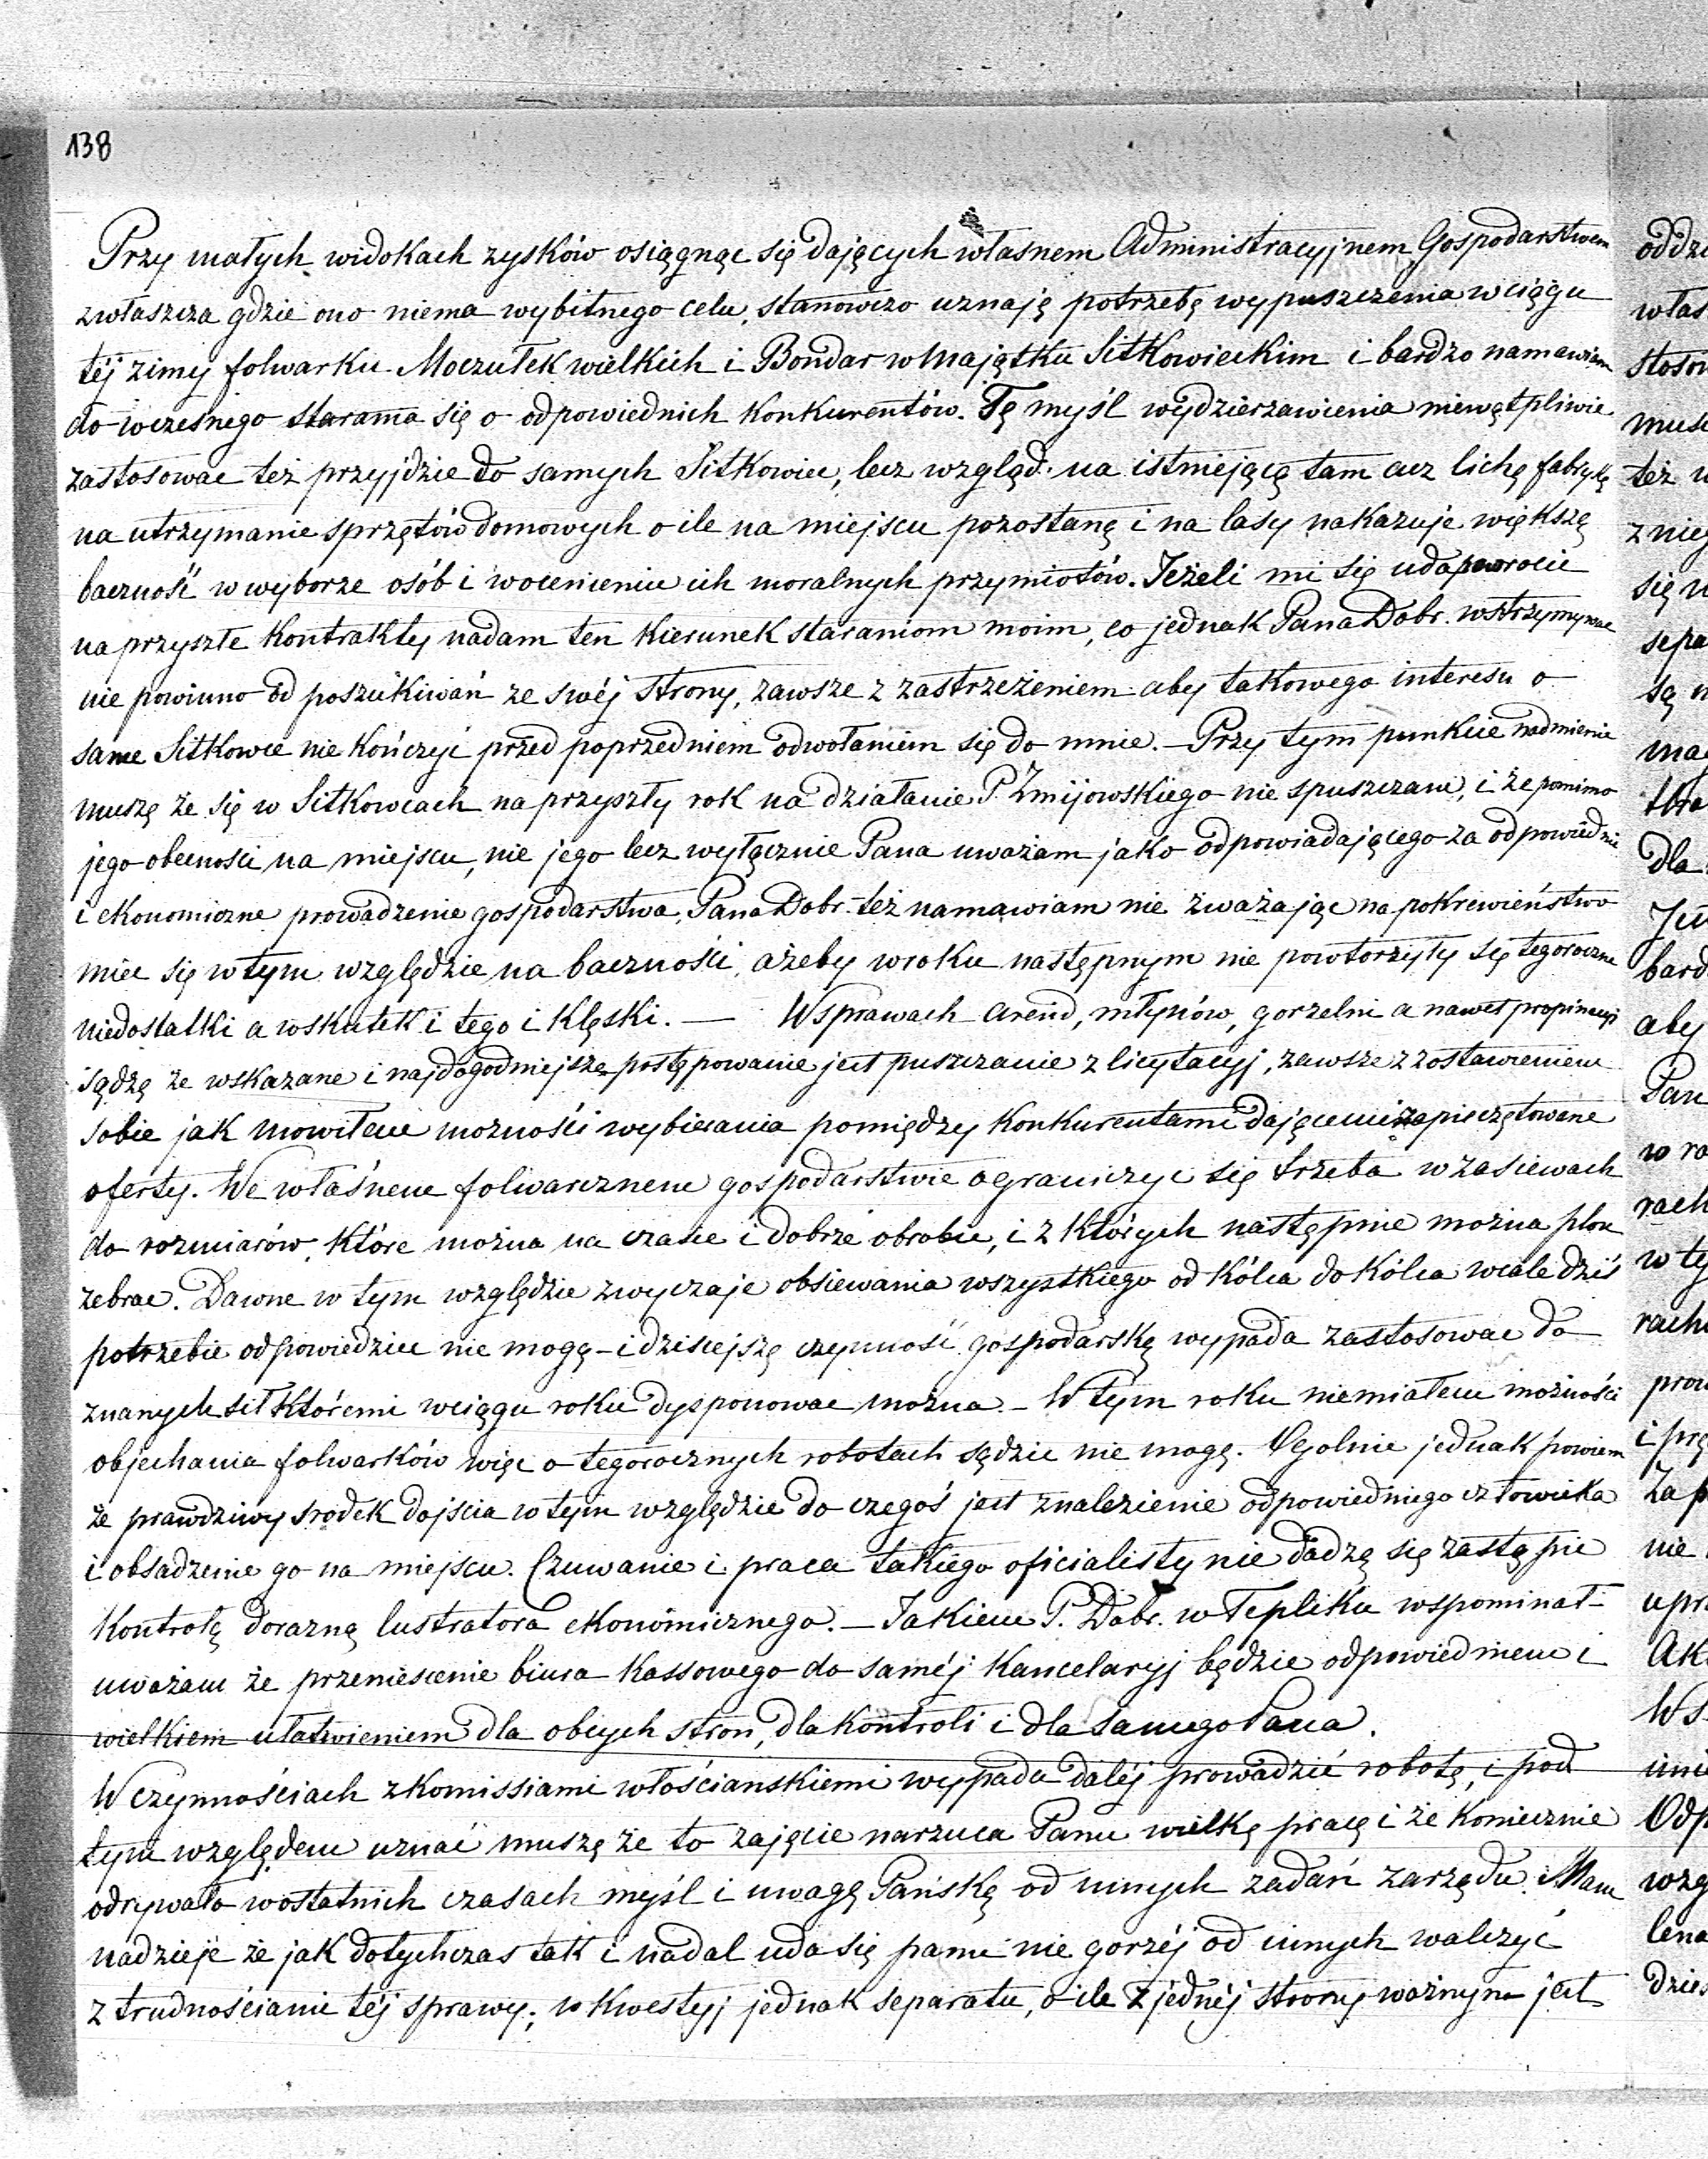 138
Przy małych widokach zysków osiągnąc się dających własnem Administracyjnem Gospodarstwem
zwłaszcza gdzie ono niema wybitnego celu, stanowczo uznaję potrzebę wypuszczenia wciągu
téj zimy folwarku Moczulek wielkich i Bondar w Majątku Sitkowieckim i bardzo namawiam
do wczesnego starania się o odpowiednich Konkurentów. Tę myśl wydzierzawienia niewątpliwie
zastosowac też przyjdzie do samych Sitkowiec, lecz wzgląd na istniejącę tam acz lichę fabrykę
na utrzymanie sprzętów domowych o ile na miejscu pozostanę i na lasy nakazuje większę
baczność w wyborze osób i wocenieniu ich moralnych przymiotów. Jeżeli mi się uda powrocić
na przyszłe Kontrakty nadam ten Kierunek staraniom moim, co jednak Pana Dobr. wstrzymywac
nie powinno od poszukiwań ze swéj strony, zawsze z zastrzeżeniem aby takowego interesu o
same Sitkowce nie Kończyć przed poprzedniem odwołaniem się do mnie. — Przy tym punkcie nadmienic
muszę że się w Sitkowcach na przyszły rok na działanie P. Zmijowskiego nie spuszczam, i że pomimo
jego obecności na miejscu, nie jego lecz wyłącznie Pana uważam jako odpowiadającego za odpowiednie
i ekonomiczne prowadzenie gospodarstwa, Pana Dobr. też namawiam nie zważając na pokrewieństwo
miec się w tym względzie na baczności, ażeby wroku następnym nie powtorzyły się tegoroczne
niedostatki a wskutek i tego i Klęski. — Wsprawach arend, młynów, gorzelni a nawet propinacyi
sądzę że wskazane i najdogodniejsze postępowanie jest puszczanie z licytacyj, zawsze z zostawieniem
sobie jak mowiłem możności wybierania pomiędzy Konkurentami dającemi zapieczętowane
oferty. We właśnem folwarcznem gospodarstwie ograniczyc się trzeba w zasiewach
do rozmiarów, Które można na czasie i dobrze obrobic, i z Których następnie można plon
zebrac. Dawne w tym względzie zwyczaje obsiewania wszystkiego od Kólca do Kólca wcale dziś
potrzebie odpowiedziec nie mogą — i dzisiejszę czynność gospodarskę wypada zastosowac do
znanych sił Któremi wciągu roku dysponowac można. — W tym roku niemiałem możności
objechania folwarków więc o tegorocznych robotach sądzic nie mogę. Ogolnie jednak powiem
że prawdziwy srodek dojscia w tym względzie do czegoś jest znalezienie odpowiedniego człowieka
i obsadzenie go na miejscu. Czuwanie i praca takiego oficialisty nie dadzą się zastąpic
Kontrolą dorazną lustratora ekonomicznego. — Jakiem P. Dobr. w Tepliku wspominał
uważam że przeniesienie biura Kassowego do saméj Kancelaryj będzie odpowiedniem i
wielkiem ułatwieniem dla obych stron, dla Kontroli i dla samego Pana.
W czynnościach z Komissiami włościanskiemi wypada daléj prowadzić robotę, i pod
tym względem uznać muszę że to zajęcie narzuca Panu wielkę pracę i że Koniecznie
odrywało w ostatnich czasach myśl i uwagę Pańskę od innych zadań zarządu. Mam
nadzieję że jak dotychczas tak i nadal uda się panu nie gorzéj od innych walczyć
z trudnościami téj sprawy; w Kwestyj jednak separatu, o ile z jednéj strony ważnym jest